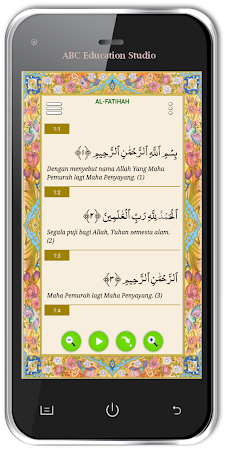 ABC Education Studio
AL-FATIHAH
1:1
بِسْمِ ٱللَّهِ ٱلرَّحْمَٰنِ ٱلرَّحِيمِ ﴿١﴾
Dengan menyebut nama Allah Yang Maha
Pemurah lagi Maha Penyayang. (1)
1:2
ٱلْحَمْدُ لِلَّهِ رَبِّ ٱلْعَٰلَمِينَ ﴿٢﴾
Segala puji bagi Allah, Tuhan semesta alam.
(2)
1:3
ٱلرَّحْمَٰنِ ٱلرَّحِيمِ ﴿٣﴾
Maha Pemurah lagi Maha Penyayang. (3)
1:4